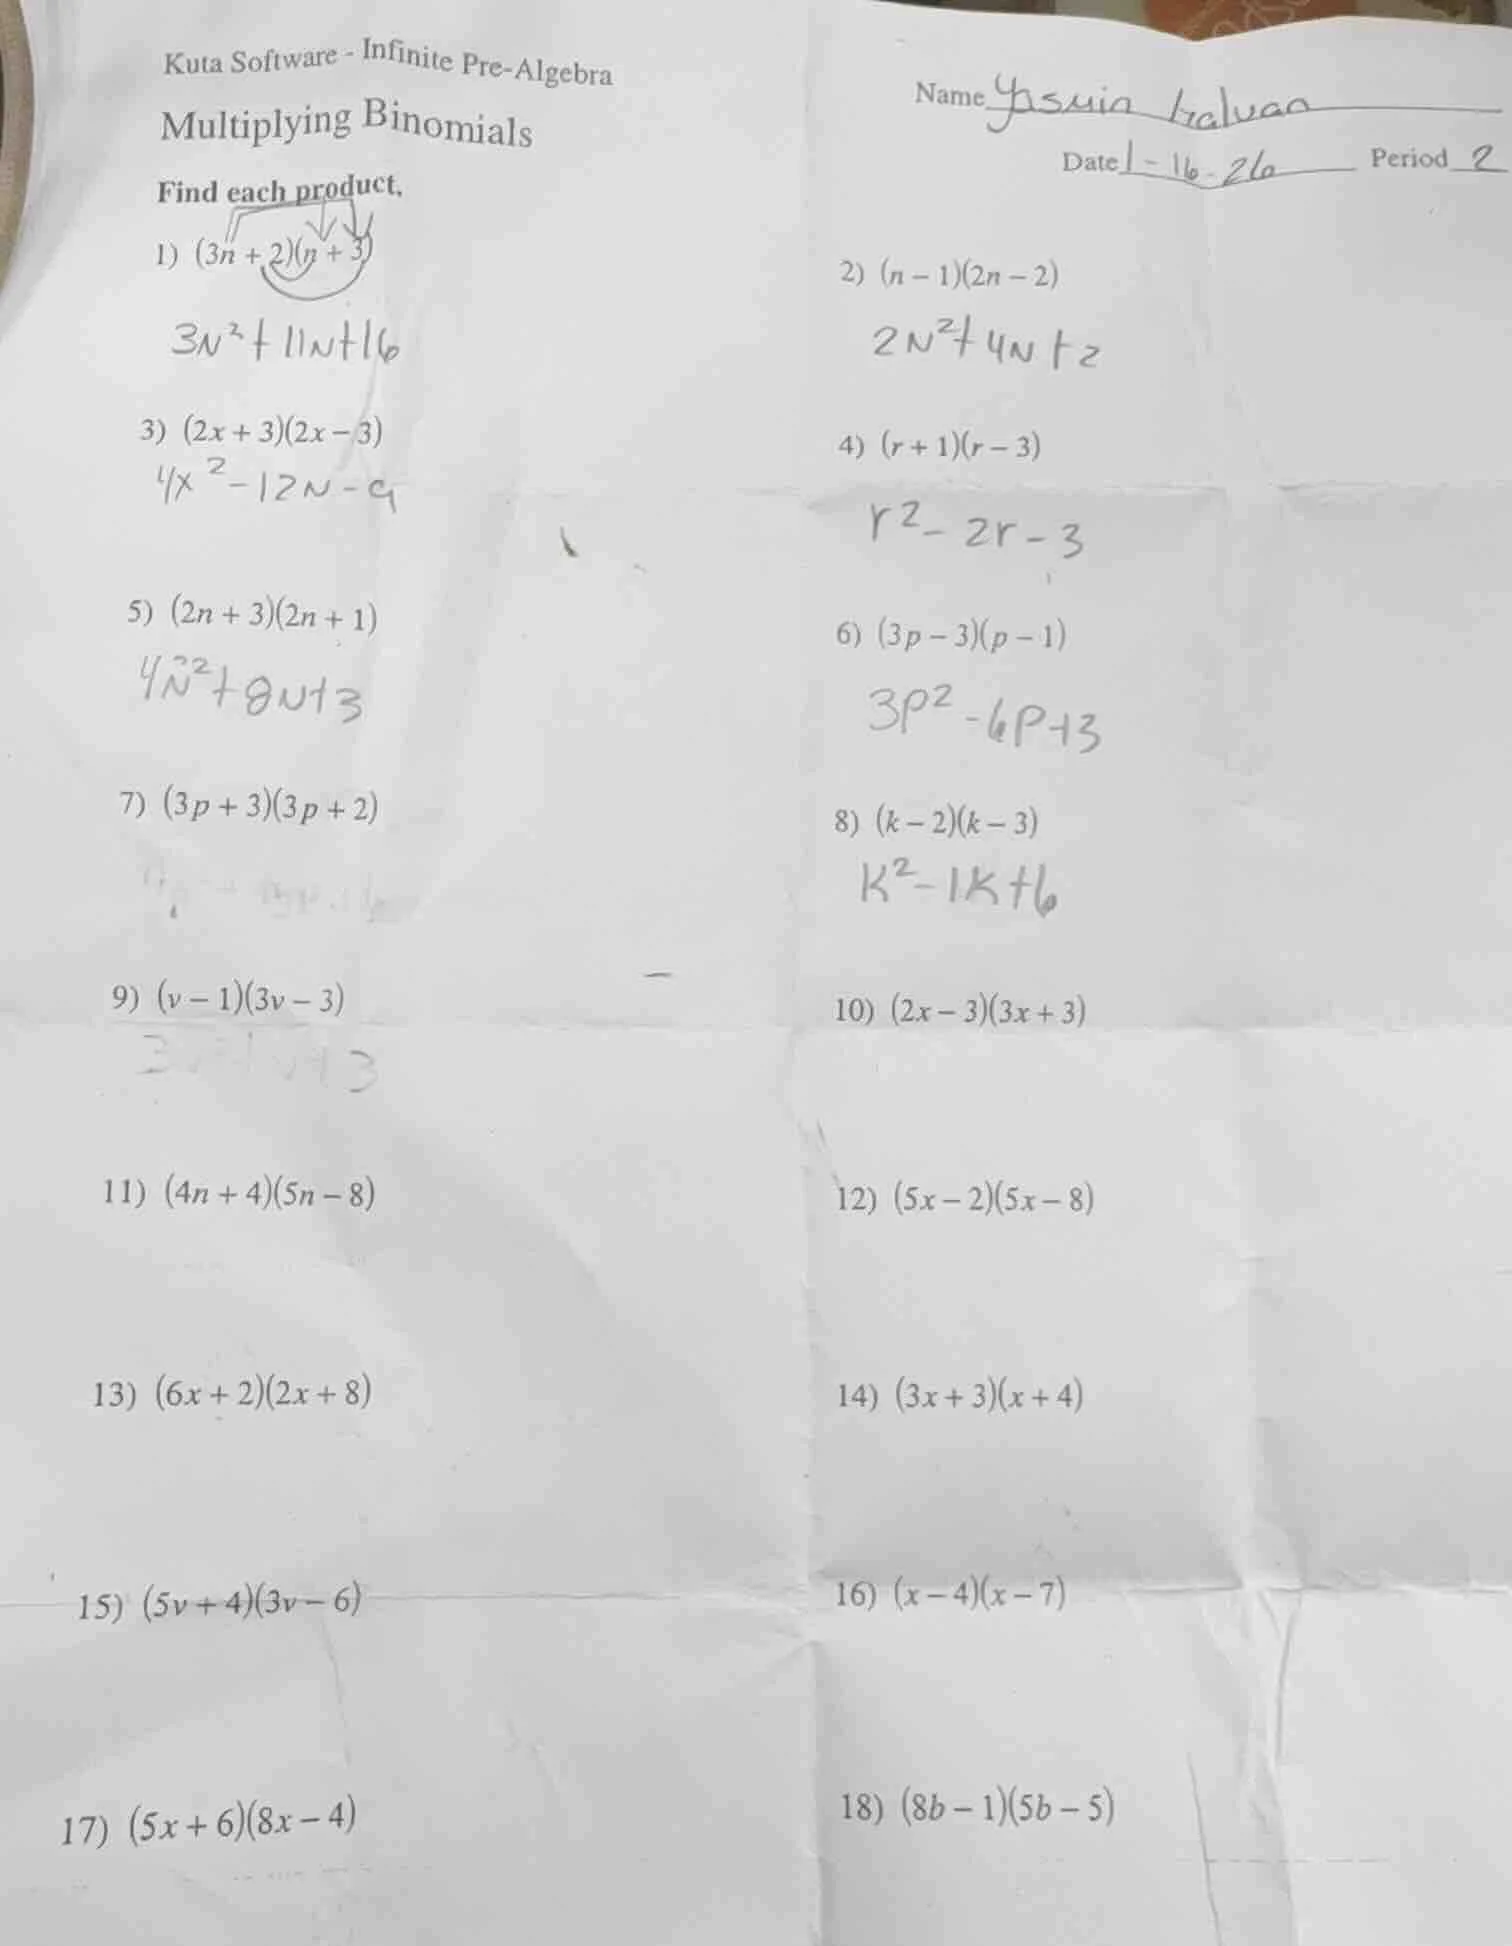 Kuta Software - Infinite Pre-Algebra
Multiplying Binomials
Name Yasmin
Date 1-16-26 Period 2
Find each product.
1) (3n + 2)(n + 3)
3N² + 11N + 16
2) (n − 1)(2n − 2)
2N² + 4N + 2
3) (2x + 3)(2x − 3)
4x² - 12N - 9
4) (r + 1)(r − 3)
r² - 2r - 3
5) (2n + 3)(2n + 1)
4N² + 8N + 3
6) (3p − 3)(p − 1)
3P² - 6P + 3
7) (3p + 3)(3p + 2)
8) (k − 2)(k − 3)
K² - 1K + 6
9) (v − 1)(3v − 3)
10) (2x − 3)(3x + 3)
11) (4n + 4)(5n − 8)
12) (5x − 2)(5x − 8)
13) (6x + 2)(2x + 8)
14) (3x + 3)(x + 4)
15) (5v + 4)(3v − 6)
16) (x − 4)(x − 7)
17) (5x + 6)(8x − 4)
18) (8b − 1)(5b − 5)